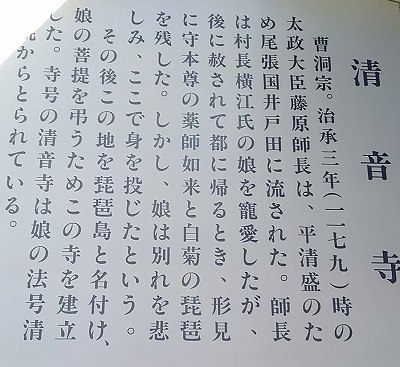 清音寺
曹洞宗。治承三年(一一七九)時の
太政大臣藤原師長は、平清盛のた
め尾張国井戸田に流された。師長
は村長横江氏の娘を寵愛したが、
後に赦されて都に帰るとき、形見
に守本尊の薬師如来と白菊の琵琶
を残した。しかし、娘は別れを悲
しみ、ここで身を投じたという。
その後この地を琵琶島と名付け、
娘の菩提を弔うためこの寺を建立
した。寺号の清音寺は娘の法号清
からとられている。